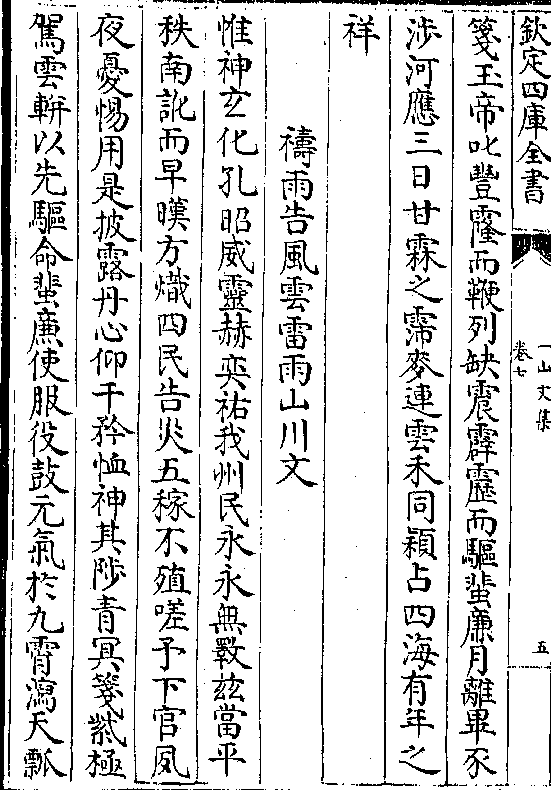 欽定四庫全書
一山文集
卷七
五
箋玉帝叱豐霳而鞭列缺震霹靂而驅蜚廉月離畢豕
涉河應三日甘霖之霈麥連雲禾同穎占四海有年之
祥
禱雨告風雲雷雨山川文
惟神玄化孔昭威靈赫奕祐我州民永永無斁兹當平
秩南訛而旱暵方熾四民告災五稼不殖嗟予下官夙
夜憂惕用是披露丹心仰干矜恤神其陟青冥箋紫極
駕雲軿以先驅命蜚廉使服役鼓元氣於九霄瀉天瓢